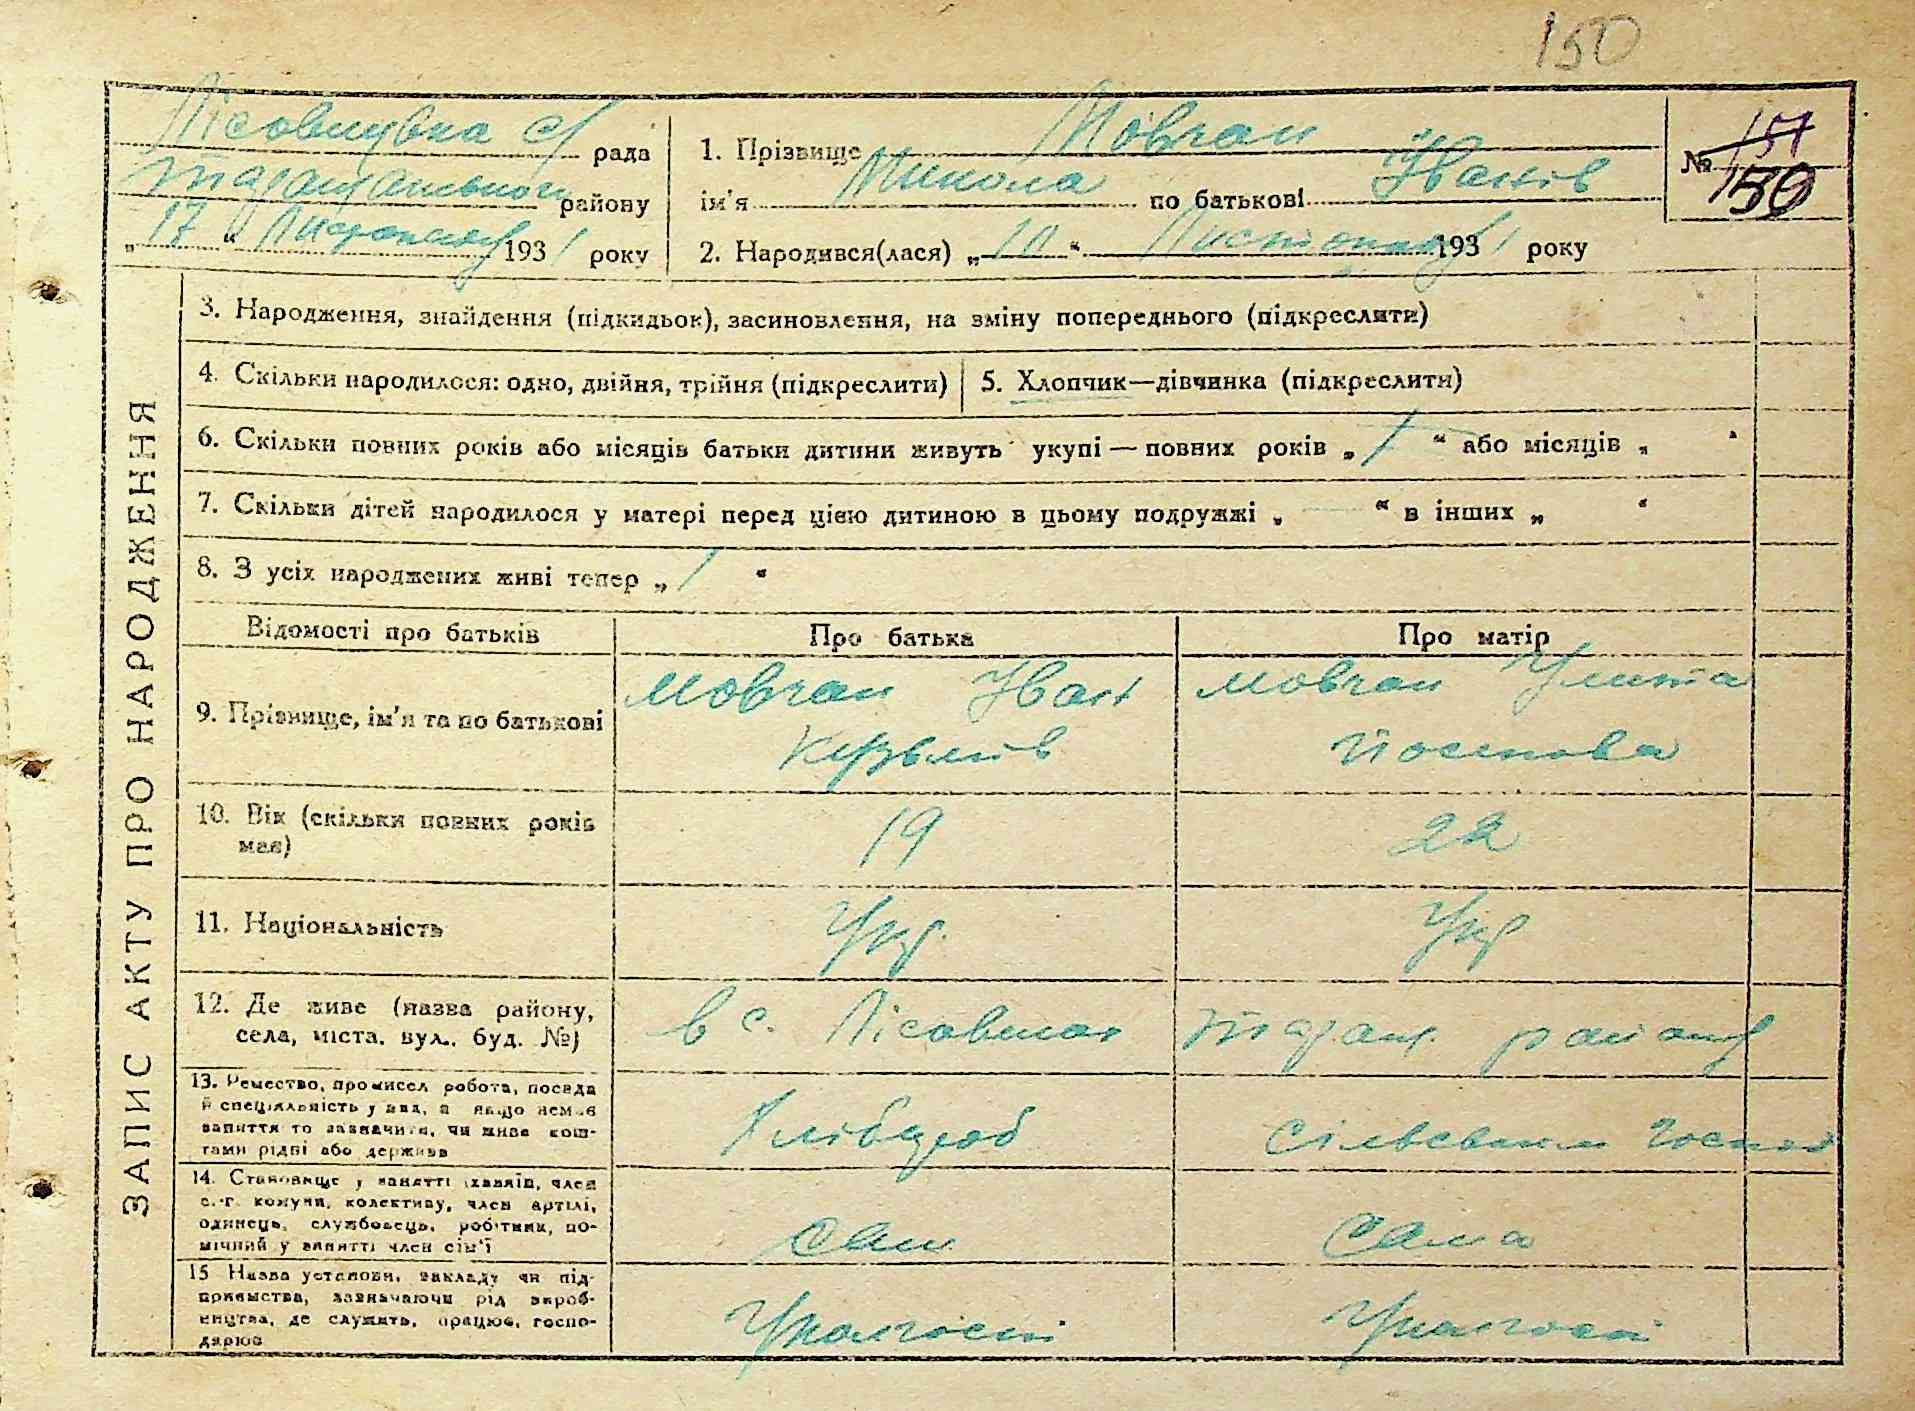 150
Лісовицька с/рада
Таращанського району
„17“ Листопад 1931 року
1. Прізвище Мовчан
ім'я Микола по батькові Іванів
2. Народився(лася) „10“ Листопад 1931 року
№ 151
150
ЗАПИС АКТУ ПРО НАРОДЖЕННЯ
3. Народження, знайдення (підкидьок), засиновлення, на зміну попереднього (підкреслити)
4. Скільки народилося: одно, двійня, трійня (підкреслити)
5. Хлопчик—дівчинка (підкреслити)
6. Скільки повних років або місяців батьки дитини живуть укупі — повних років „1“ або місяців „ “
7. Скільки дітей народилося у матері перед цією дитиною в цьому подружжі „—“ в інших „ “
8. З усіх народжених живі тепер „1“
Відомості про батьків Про батька Про матір
9. Прізвище, ім'я та по батькові
Мовчан Іван
Мовчан Улита
10. Вік (скільки повних років
має)
19
22
11. Національність
Укр.
Укр
12. Де живе (назва району,
села, міста, вул., буд. №)
в с.
Таращ. району
13. Ремество, промисел робота, посада
й спеціяльність у яка, а якщо немає
заняття то зазначити, чи живе кош-
тами рідні або держави
Хлібороб
14. Становище у занятті (хазяїн, член
с.-г. комуни, колективу, член артілі,
одинець, службовець, робітник, по-
мічний у занятті член сім'ї
Сам
Сама
15 Назва установи, закладу чи під-
приємства, зазначаючи рід вироб-
ництва, де служить, працює, госпо-
дарює